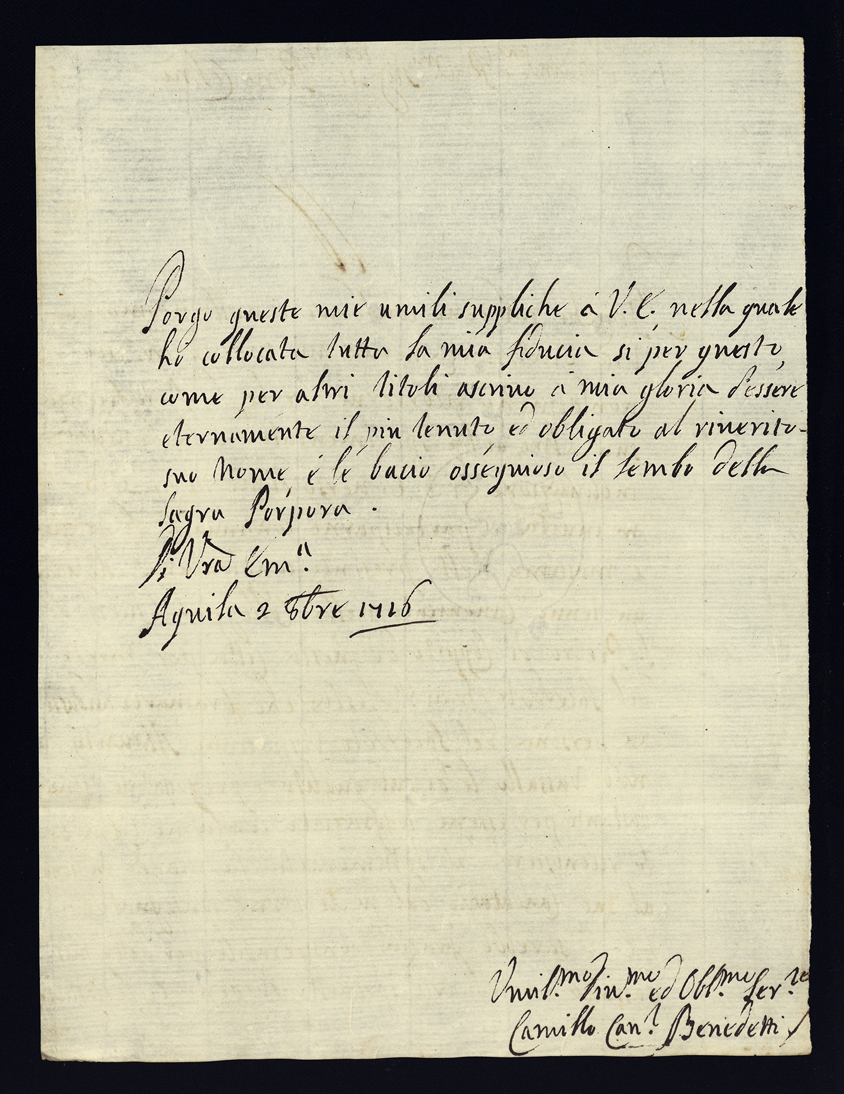 Porgo queste mie umili suppliche à V. E. nella quale
hò collocata tutta la mia fiducia si per questo,
come per altri titoli ascrivo à mia gloria d'essere
eternamente il piu tenuto ed obligato al riverito
suo Nome, è le bacio ossequioso il lembo della
sagra Porpora.
Di Vra Em.ª
Aquila 2 8bre 1716
Umil.mo Div.mo ed Obl.mo Ser.re
Camillo Can.º Benedetti